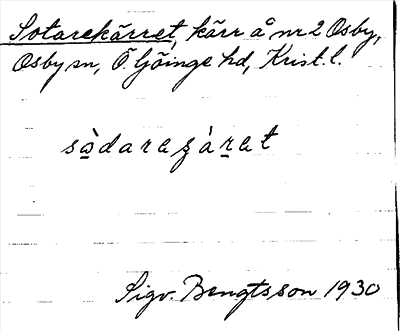 Sotarekärret, kärr å nr 2 Osby,
Osby sn, Ö. Göinge hd, Krist. l.
sòdarezáret
Sigv. Bengtsson 1930